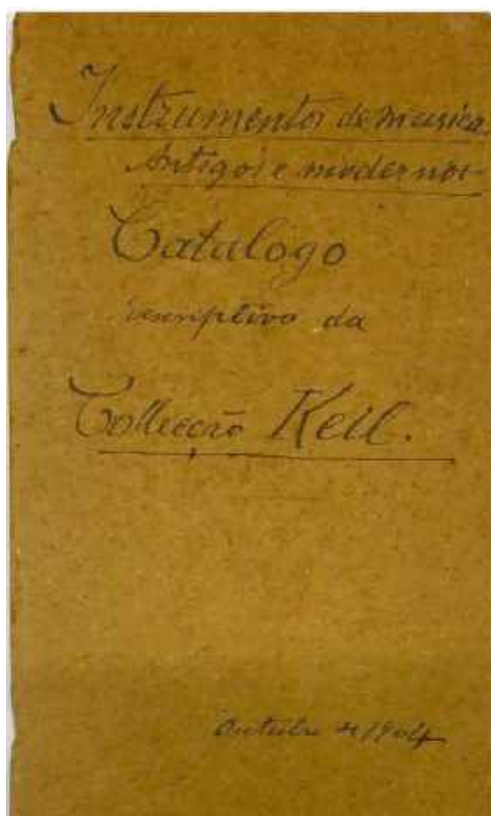 Instrumentos de musica
Antigos e modernos
Catalogo
descriptivo da
Collecção Keil.
Outubro 1904